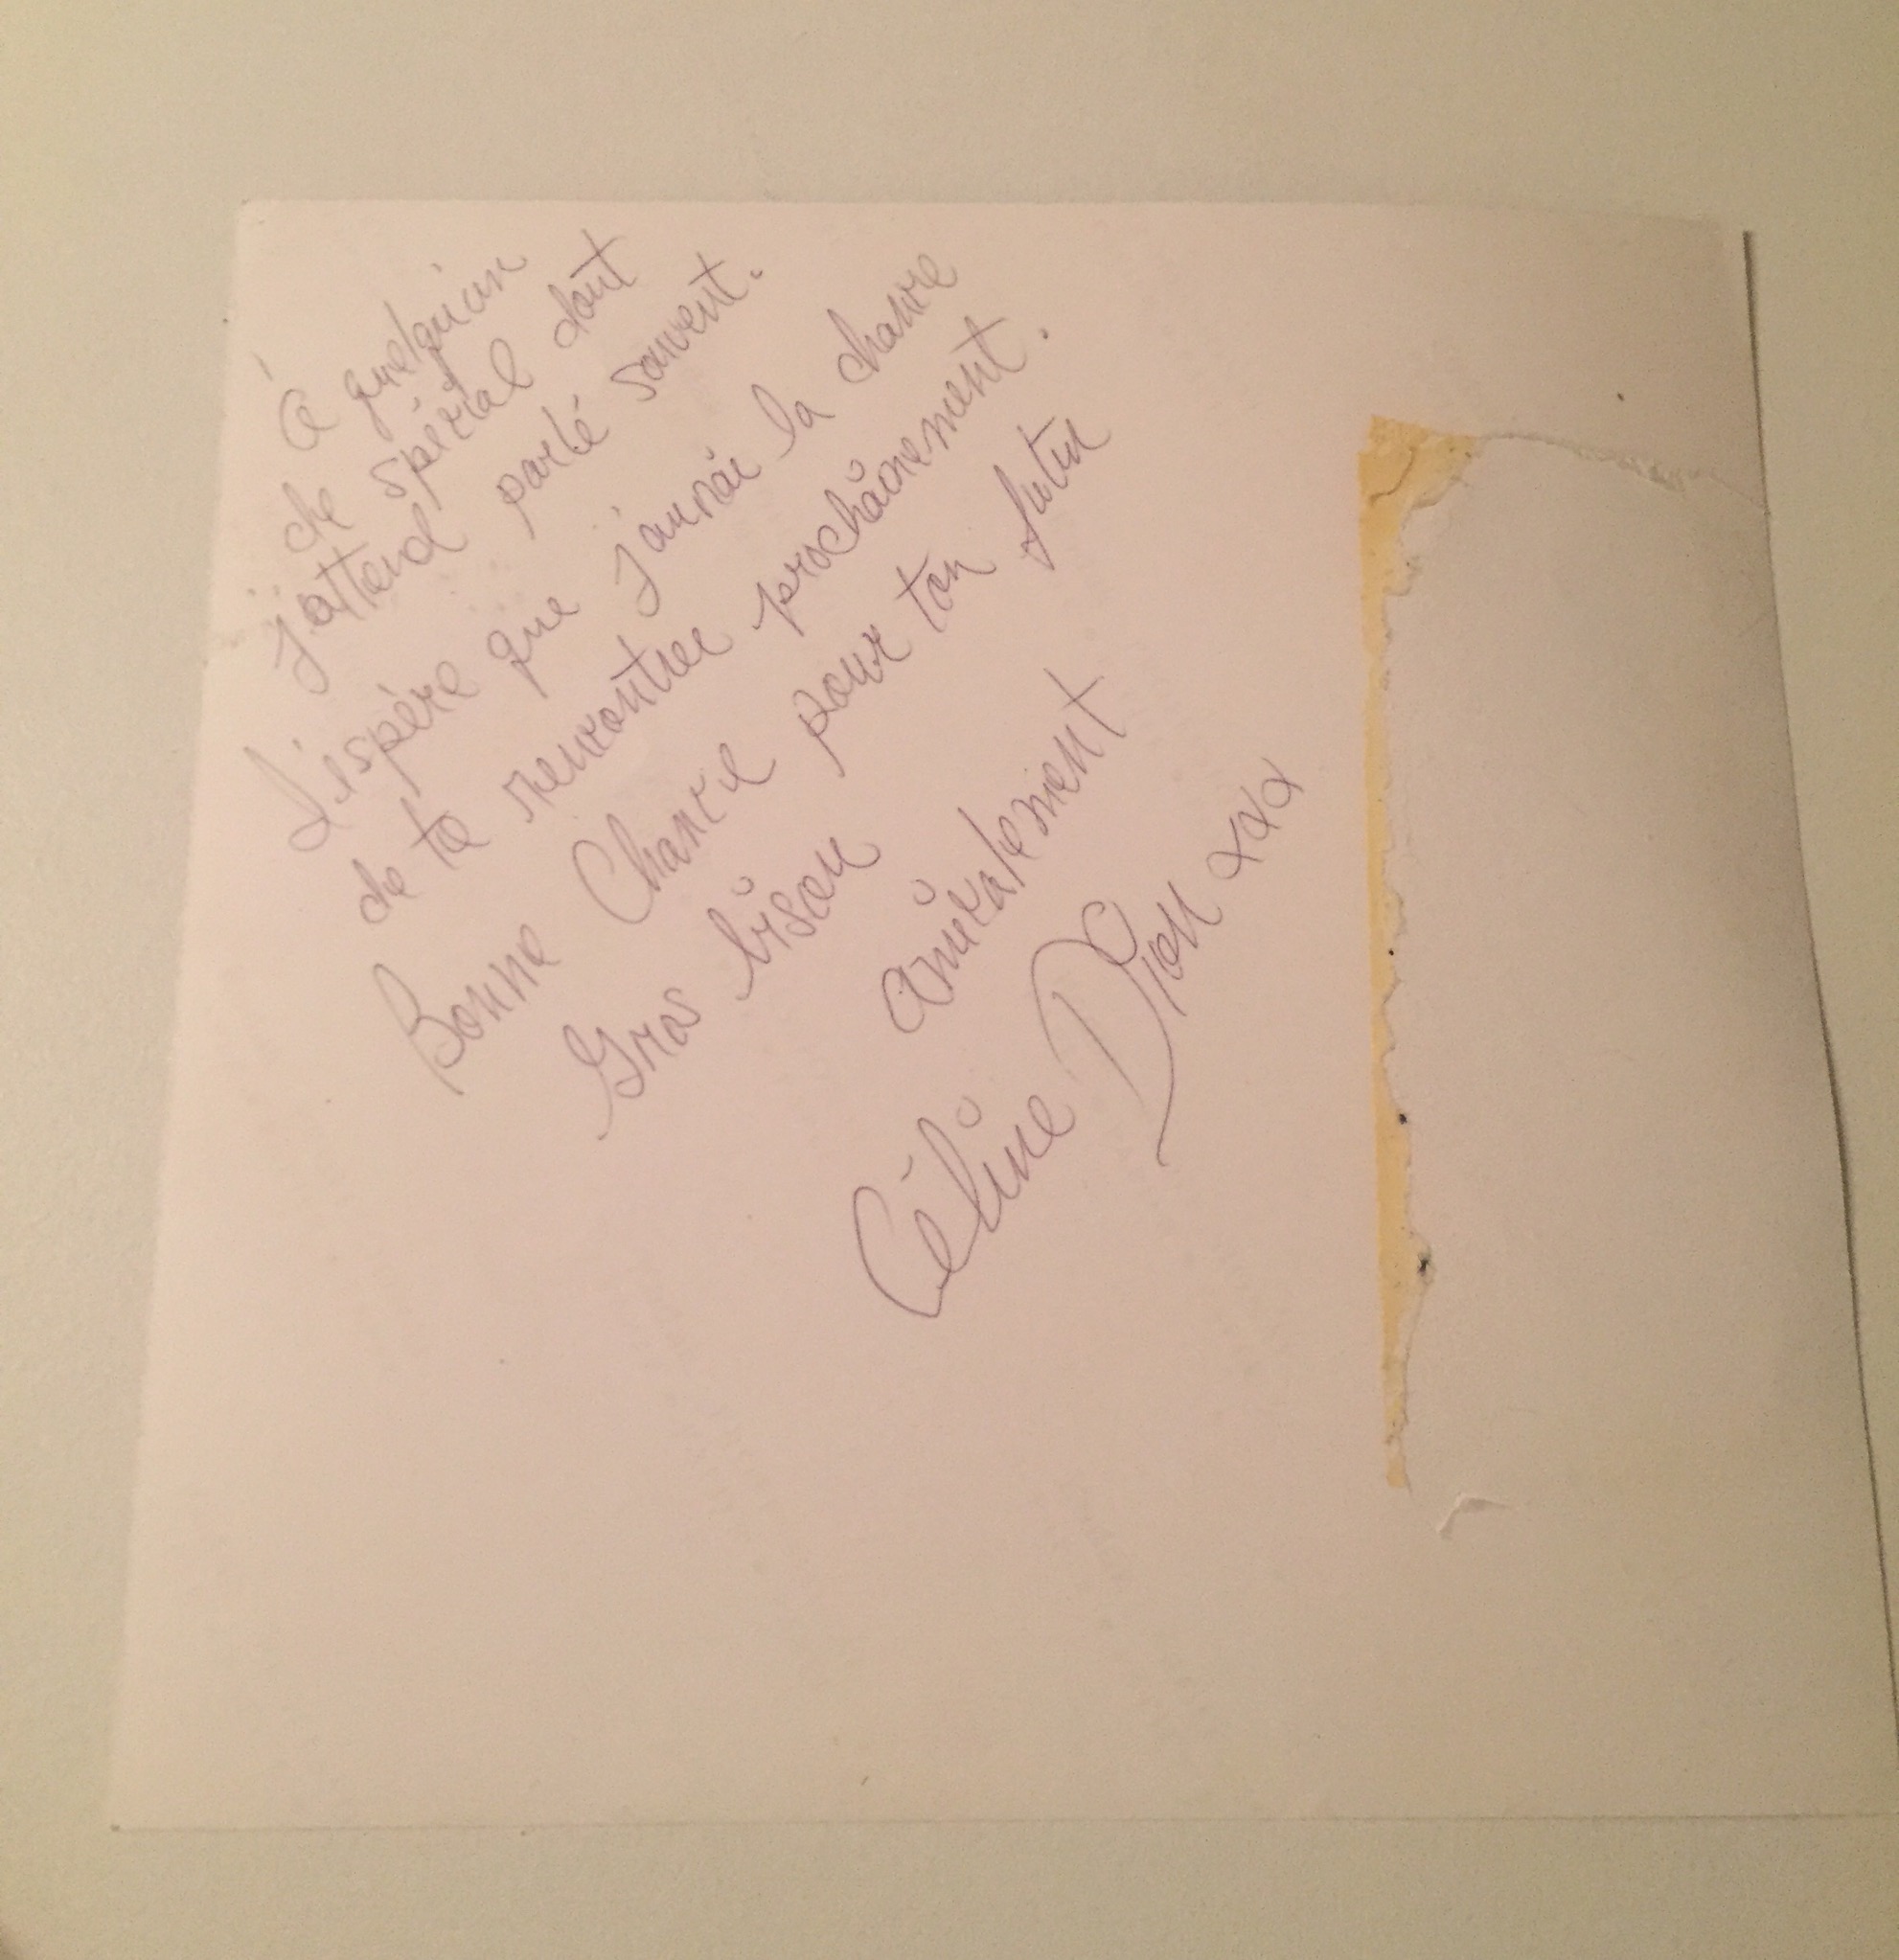 À quelqu'un
de spécial dont
j'attend parlé souvent.
J'espère que j'aurai la chance
de te rencontrer prochainement.
Bonne Chance pour ton futur
Gros bisou
amicalement
Céline Dion xxx